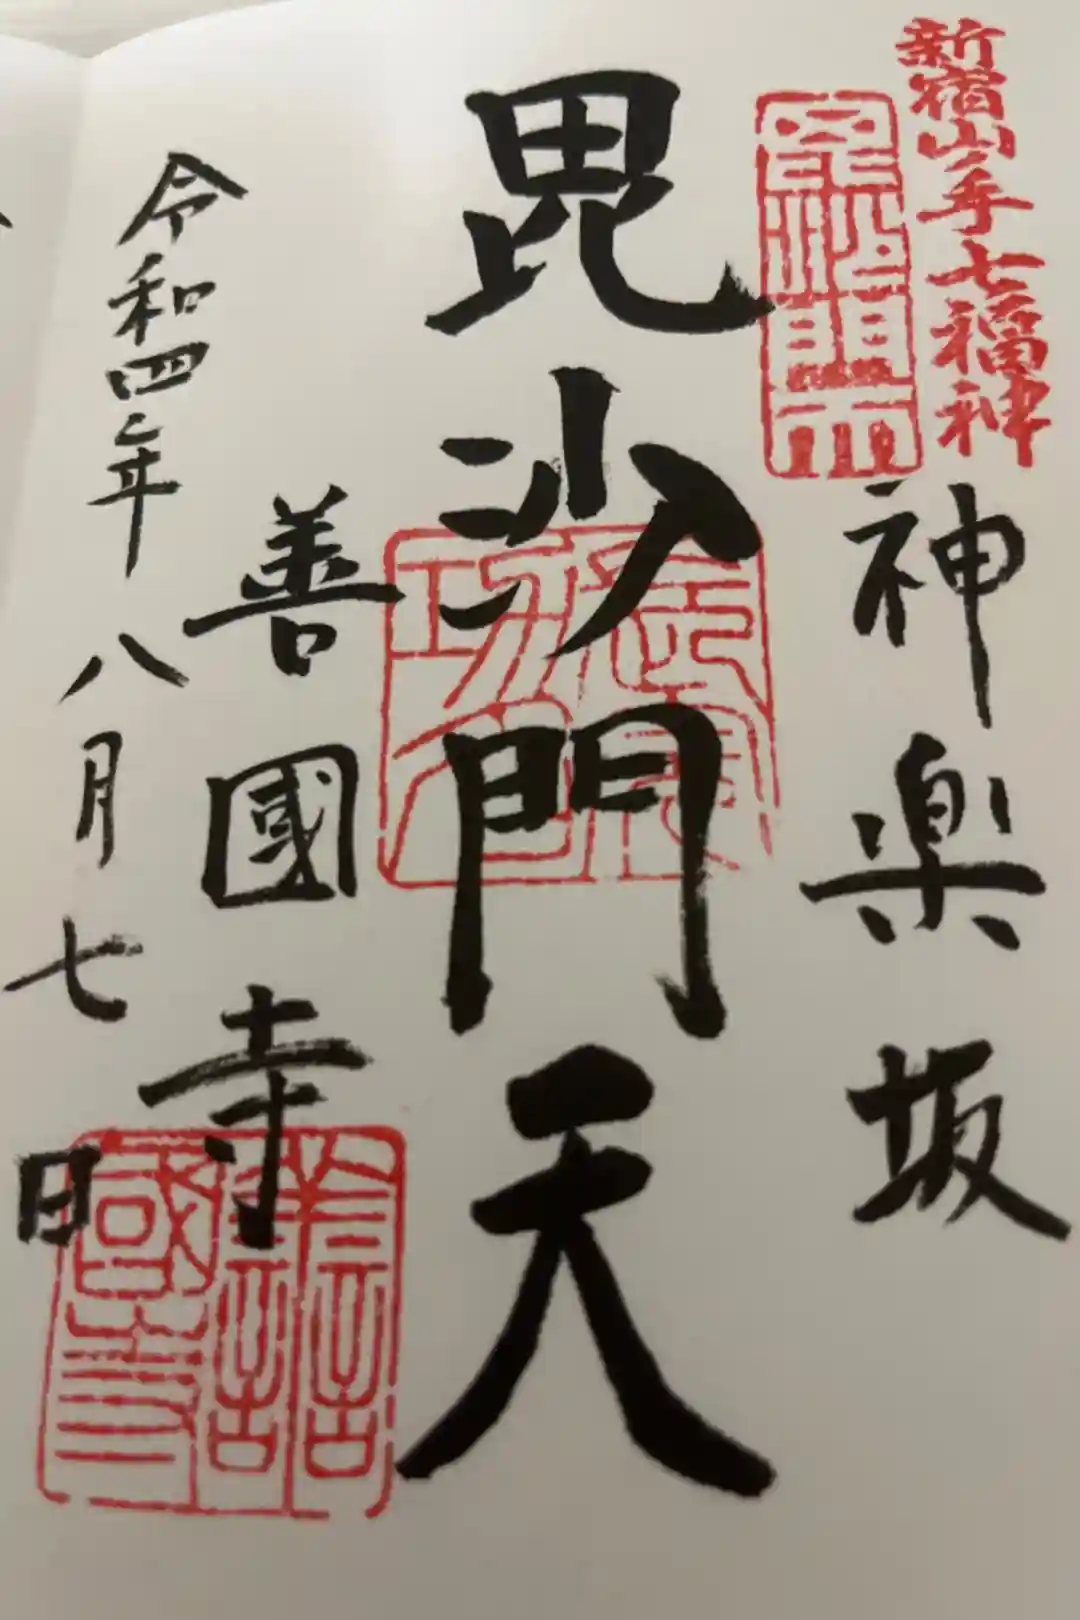 新宿山ノ手七福神
神楽坂
毘沙門天
善國寺
令和四年八月七日